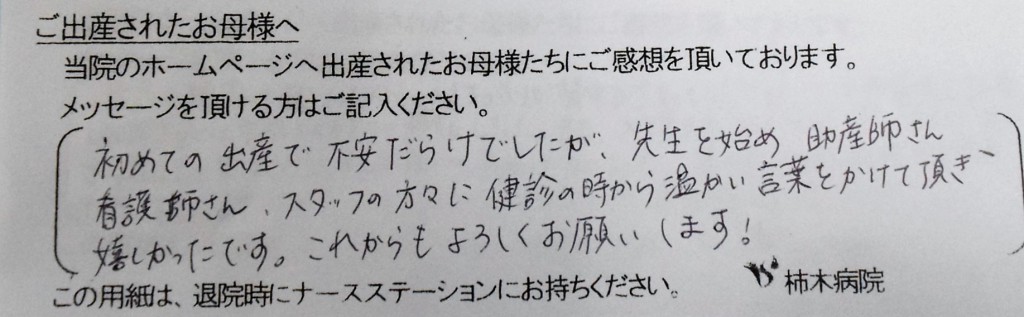 ご出産されたお母様へ
当院のホームページへ出産されたお母様たちにご感想を頂いております。
メッセージを頂ける方はご記入ください。
初めての出産で不安だらけでしたが、先生を始め助産師さん
看護師さん、スタッフの方々に健診の時から温かい言葉をかけて頂き、
嬉しかったです。これからもよろしくお願いします!
この用紙は、退院時にナースステーションにお持ちください。 柿木病院